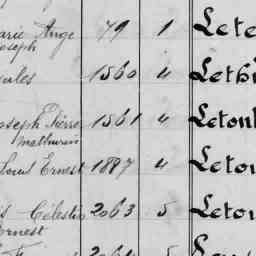 arie Ange 79 1 Lete
Joseph
ules 1560 4 Leth
Joseph Pierre 1561 4 Leton
Mathurin
Louis Ernest 1887 4 Leton
s Célestin 2063 5 Leton
Ernest